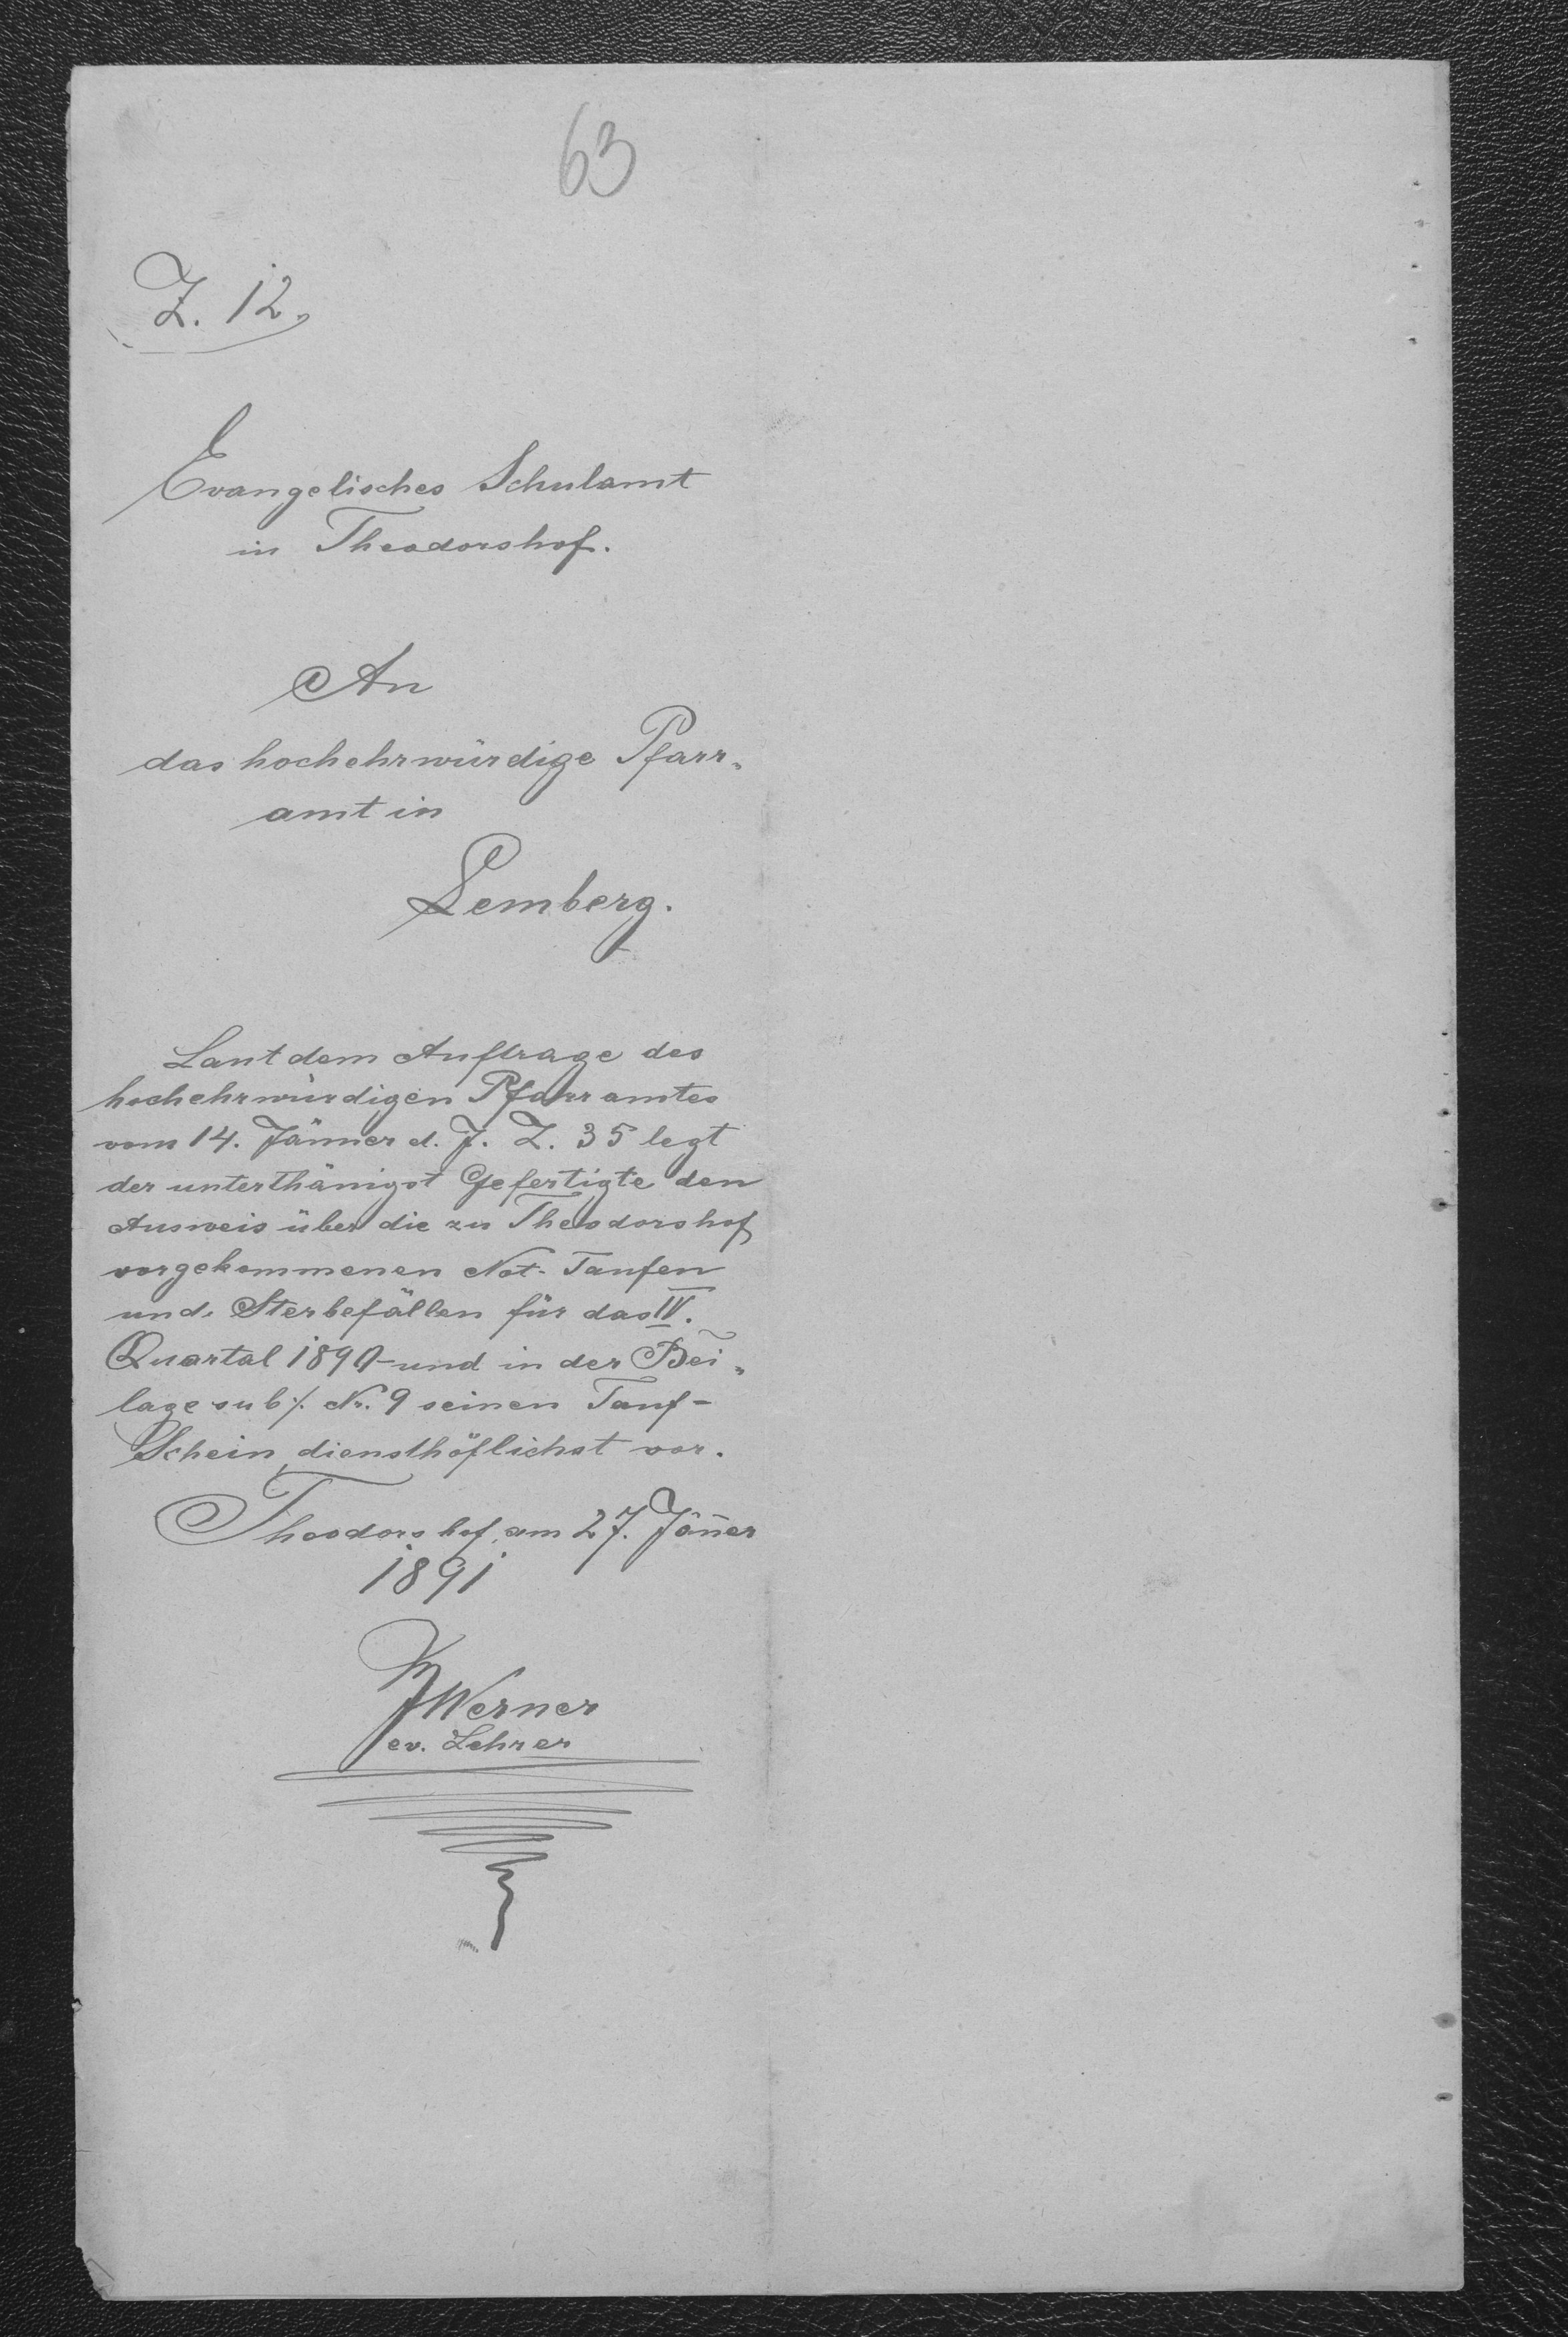 63
Z. 12.
Evangelisches Schulamt
in Theodorshof.
An
das hochehrwürdige Pfarr„
amt in
Lemberg.
Laut dem Auftrage des
hochehrwürdigen Pfarramtes
vom 14. Jänner d. J. Z. 35 legt
der unterthänigst Gefertigte den
Ausweis über die zu Theodorshof
vorgekommenen Not-Taufen
und Sterbefällen für das IV.
Quartal 1890 und in der Bei„
lage sub ·/. Nr. 9 seinen Tauf-
Schein diensthöflichst vor.
Theodorshof, am 27. Jän̄er
1891
Werner
ev. Lehrer